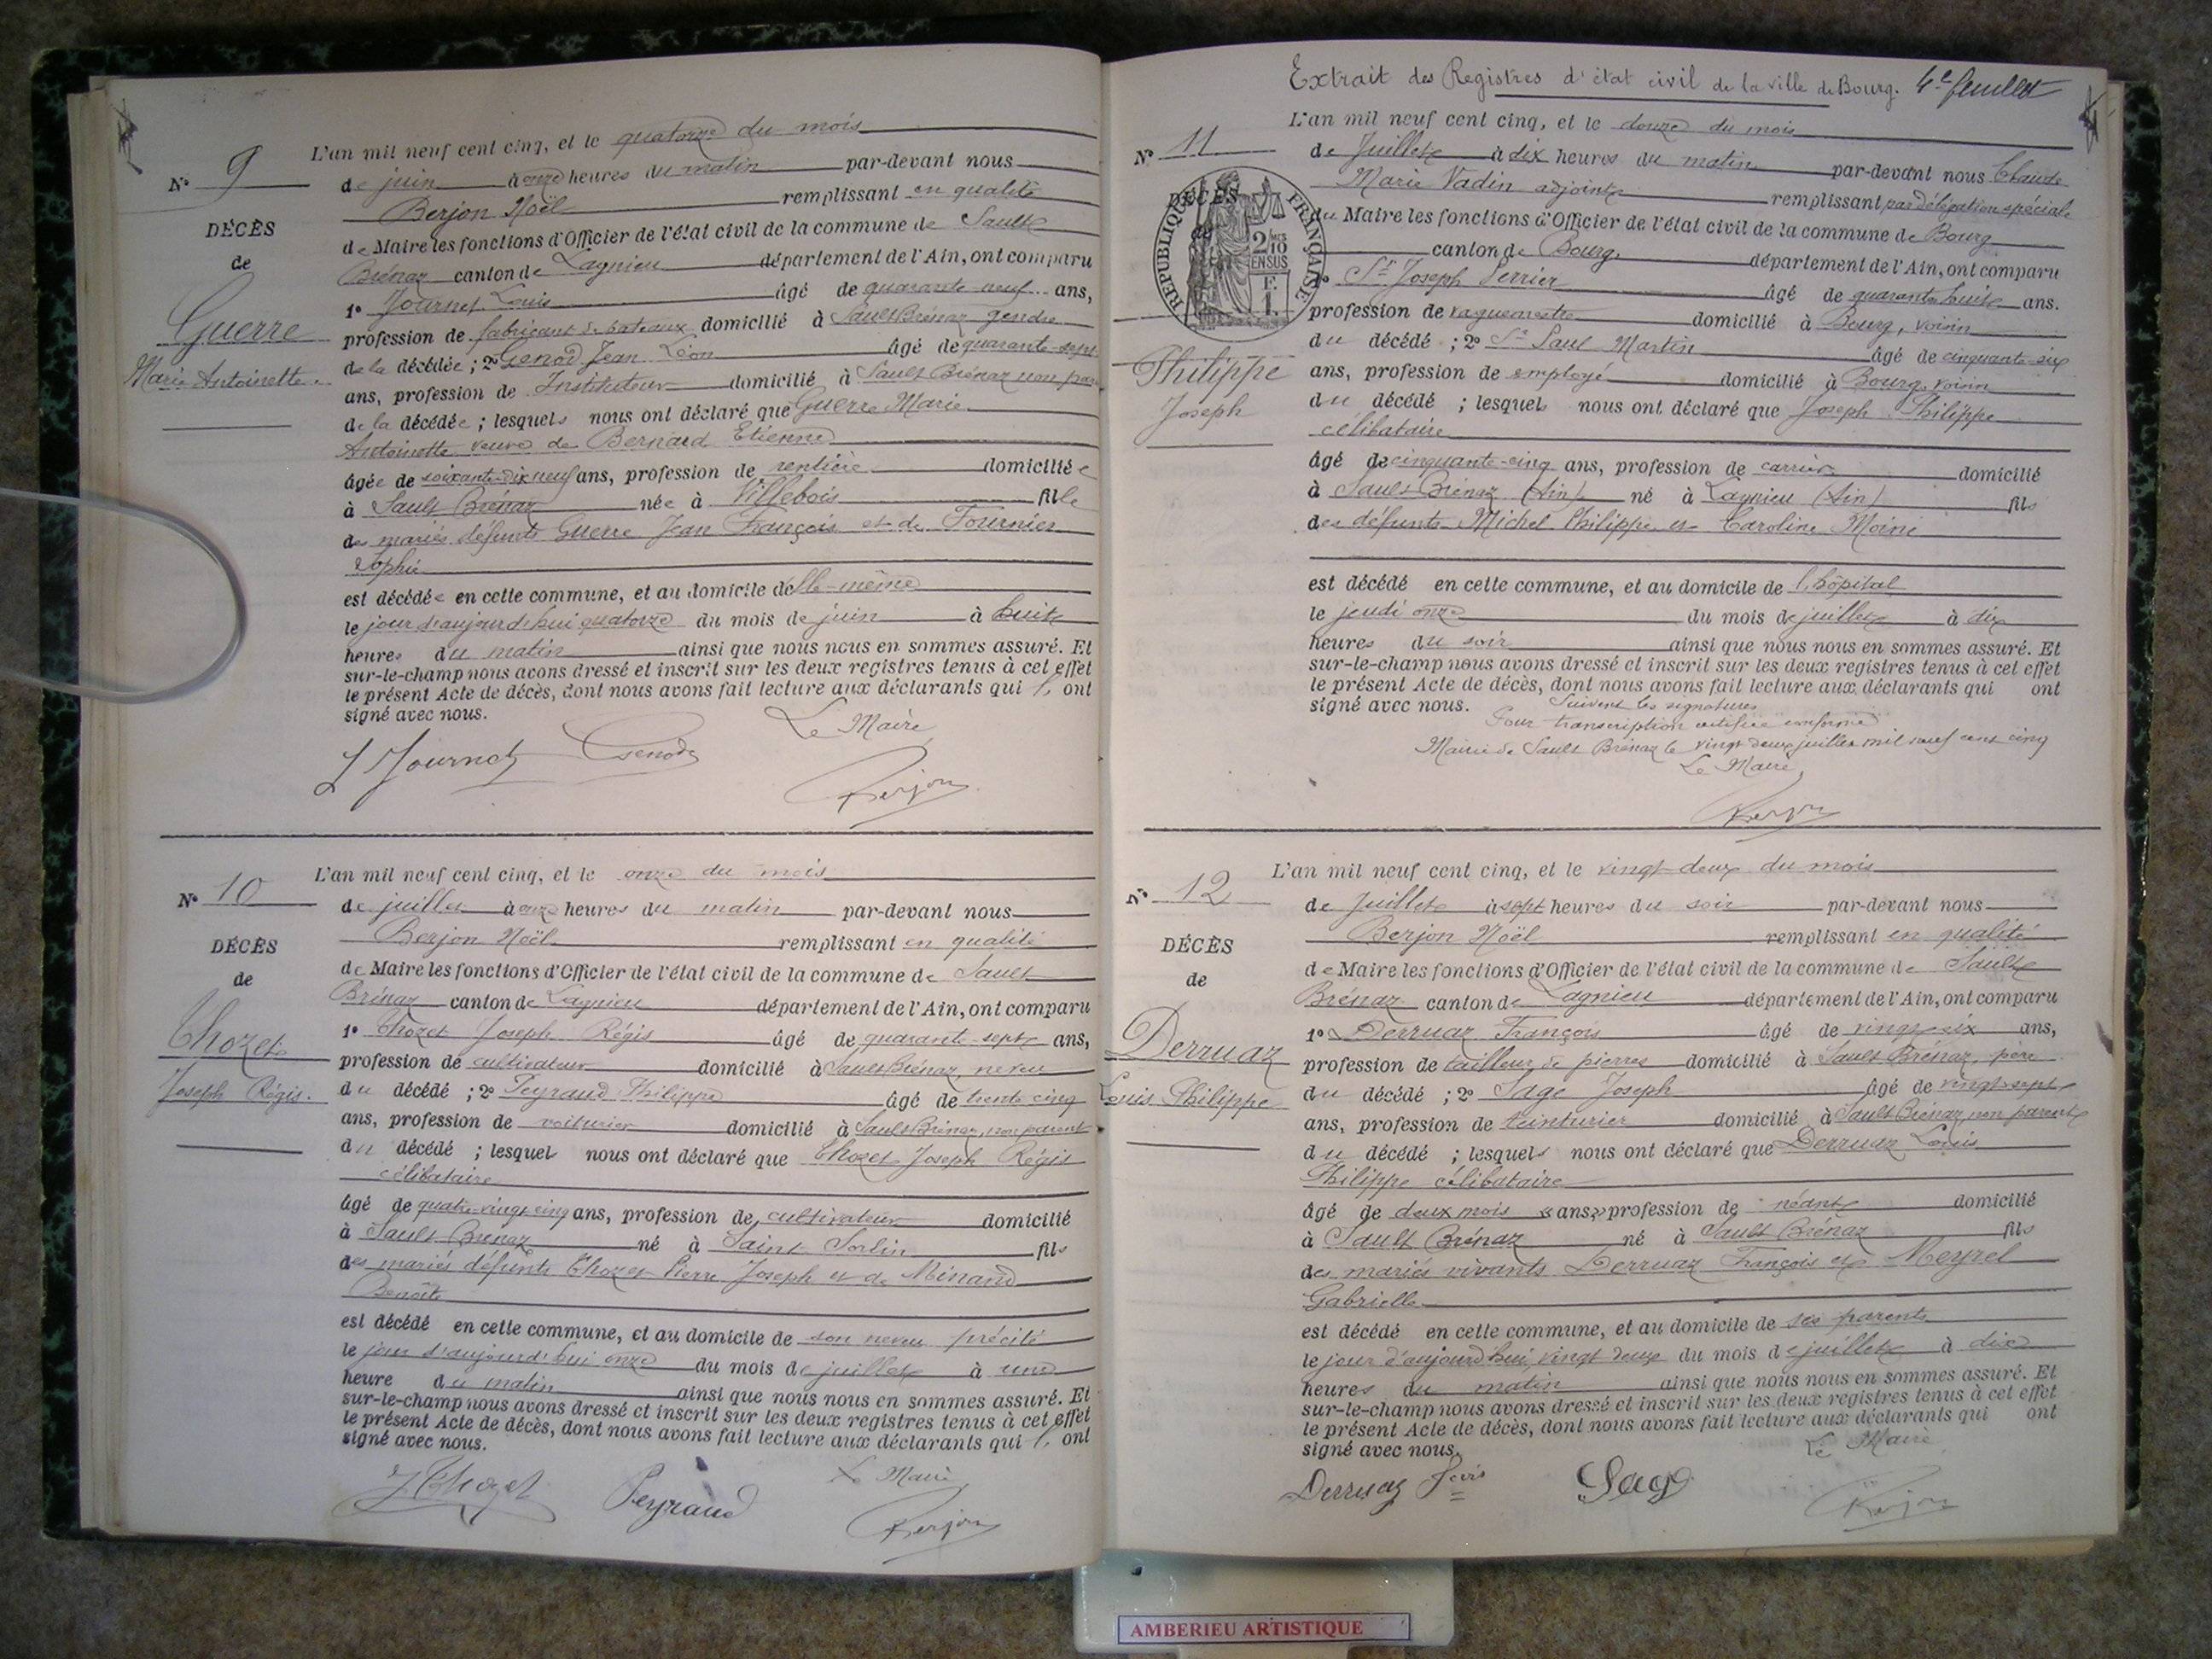 N° 9
DÉCÈS
de
Guerre
Marie Antoinette.
L'an mil neuf cent cinq, et le quatorze du mois
de juin à onze heures du matin par-devant nous
Berjon Noël remplissant en qualité
de Maire les fonctions d'Officier de l'état civil de la commune de Sault
Brénaz canton de Lagnieu département de l'Ain, ont comparu
1° Journet Louis âgé de quarante neuf ans,
profession de fabricant de bateaux domicilié à Sault Brénaz gendre
de la décédée ; 2° Genod Jean Léon âgé de quarante-sept
ans, profession de Instituteur domicilié à Sault Brénaz non parent
de la décédée ; lesquels nous ont déclaré que Guerre Marie
Antoinette veuve de Bernard Etienne
âgée de soixante-dix neuf ans, profession de rentière domiciliée
à Sault Brénaz née à Villebois fille
des mariés défunts Guerre Jean François et de Fournier
Sophie
est décédée en cette commune, et au domicile d'elle-même
le jour d'aujourd'hui quatorze du mois de juin à huit
heures du matin ainsi que nous nous en sommes assuré. Et
sur-le-champ nous avons dressé et inscrit sur les deux registres tenus à cet effet
le présent Acte de décès, dont nous avons fait lecture aux déclarants qui l' ont
signé avec nous.
Le Maire
L Journet Genod Berjon
N° 10
DÉCÈS
de
Chozet
Joseph Régis.
L'an mil neuf cent cinq, et le onze du mois
de juillet à onze heures du matin par-devant nous
Berjon Noël remplissant en qualité
de Maire les fonctions d'Officier de l'état civil de la commune de Sault
Brénaz canton de Lagnieu département de l'Ain, ont comparu
1° Chozet Joseph Régis âgé de quarante-sept ans,
profession de cultivateur domicilié à Sault Brénaz, neveu
du décédé ; 2° Peyraud Philippe âgé de trente cinq
ans, profession de voiturier domicilié à Sault Brénaz, non parent
du décédé ; lesquels nous ont déclaré que Chozet Joseph Régis
célibataire
âgé de quatre-vingt cinq ans, profession de cultivateur domicilié
à Sault Brénaz né à Saint Sorlin fils
des mariés défunts Chozet Pierre Joseph et de Minand
Benoîte
est décédé en cette commune, et au domicile de son neveu précité
le jour d'aujourd'hui onze du mois de juillet à une
heure du matin ainsi que nous nous en sommes assuré. Et
sur-le-champ nous avons dressé et inscrit sur les deux registres tenus à cet effet
le présent Acte de décès, dont nous avons fait lecture aux déclarants qui l' ont
signé avec nous.
Le Maire
J Chozet Peyraud Berjon
Extrait des Registres d'état civil de la ville de Bourg. 4e feuillet
N° 11
DÉCÈS
de
RÉPUBLIQUE FRANÇAISE
2/10
EN SUS
F.
1.
Philippe
Joseph
L'an mil neuf cent cinq, et le douze du mois
de Juillet à dix heures du matin par-devant nous Claude
Marie Vadin adjoint remplissant par délégation spéciale
du Maire les fonctions d'Officier de l'état civil de la commune de Bourg
canton de Bourg département de l'Ain, ont comparu
1° Sr Joseph Perrier âgé de quarante huit ans.
profession de vaguemestre domicilié à Bourg, voisin
du décédé ; 2° Sr Paul Martin âgé de cinquante six
ans, profession de employé domicilié à Bourg voisin
du décédé ; lesquels nous ont déclaré que Joseph Philippe
célibataire
âgé de cinquante-cinq ans, profession de carrier domicilié
à Sault Brénaz (Ain) né à Lagnieu (Ain) fils
des défunts Michel Philippe et Caroline Moine
est décédé en cette commune, et au domicile de l'hôpital
le jeudi onze du mois de juillet à dix
heures du soir ainsi que nous nous en sommes assuré. Et
sur-le-champ nous avons dressé et inscrit sur les deux registres tenus à cet effet
le présent Acte de décès, dont nous avons fait lecture aux déclarants qui ont
signé avec nous. Suivent les signatures
Pour transcription certifiée conforme
Mairie de Sault Brénaz le vingt deux juillet mil neuf cent cinq
Le Maire
Berjon
N° 12
DÉCÈS
de
Derruaz
Louis Philippe
L'an mil neuf cent cinq, et le vingt-deux du mois
de Juillet à sept heures du soir par-devant nous
Berjon Noël remplissant en qualité
de Maire les fonctions d'Officier de l'état civil de la commune de Sault
Brénaz canton de Lagnieu département de l'Ain, ont comparu
1° Derruaz François âgé de vingt-six ans,
profession de tailleur de pierres domicilié à Sault Brénaz, père
du décédé ; 2° Sage Joseph âgé de vingt-sept
ans, profession de teinturier domicilié à Sault Brénaz, non parent
du décédé ; lesquels nous ont déclaré que Derruaz Louis
Philippe célibataire
âgé de deux mois « ans » profession de néant domicilié
à Sault Brénaz né à Sault Brénaz fils
des mariés vivants Derruaz François et Meyrel
Gabrielle
est décédé en cette commune, et au domicile de ses parents
le jour d'aujourd'hui vingt deux du mois de juillet à dix
heures du matin ainsi que nous nous en sommes assuré. Et
sur-le-champ nous avons dressé et inscrit sur les deux registres tenus à cet effet
le présent Acte de décès, dont nous avons fait lecture aux déclarants qui ont
signé avec nous.
Le Maire
Derruaz Sage Berjon
AMBERIEU ARTISTIQUE